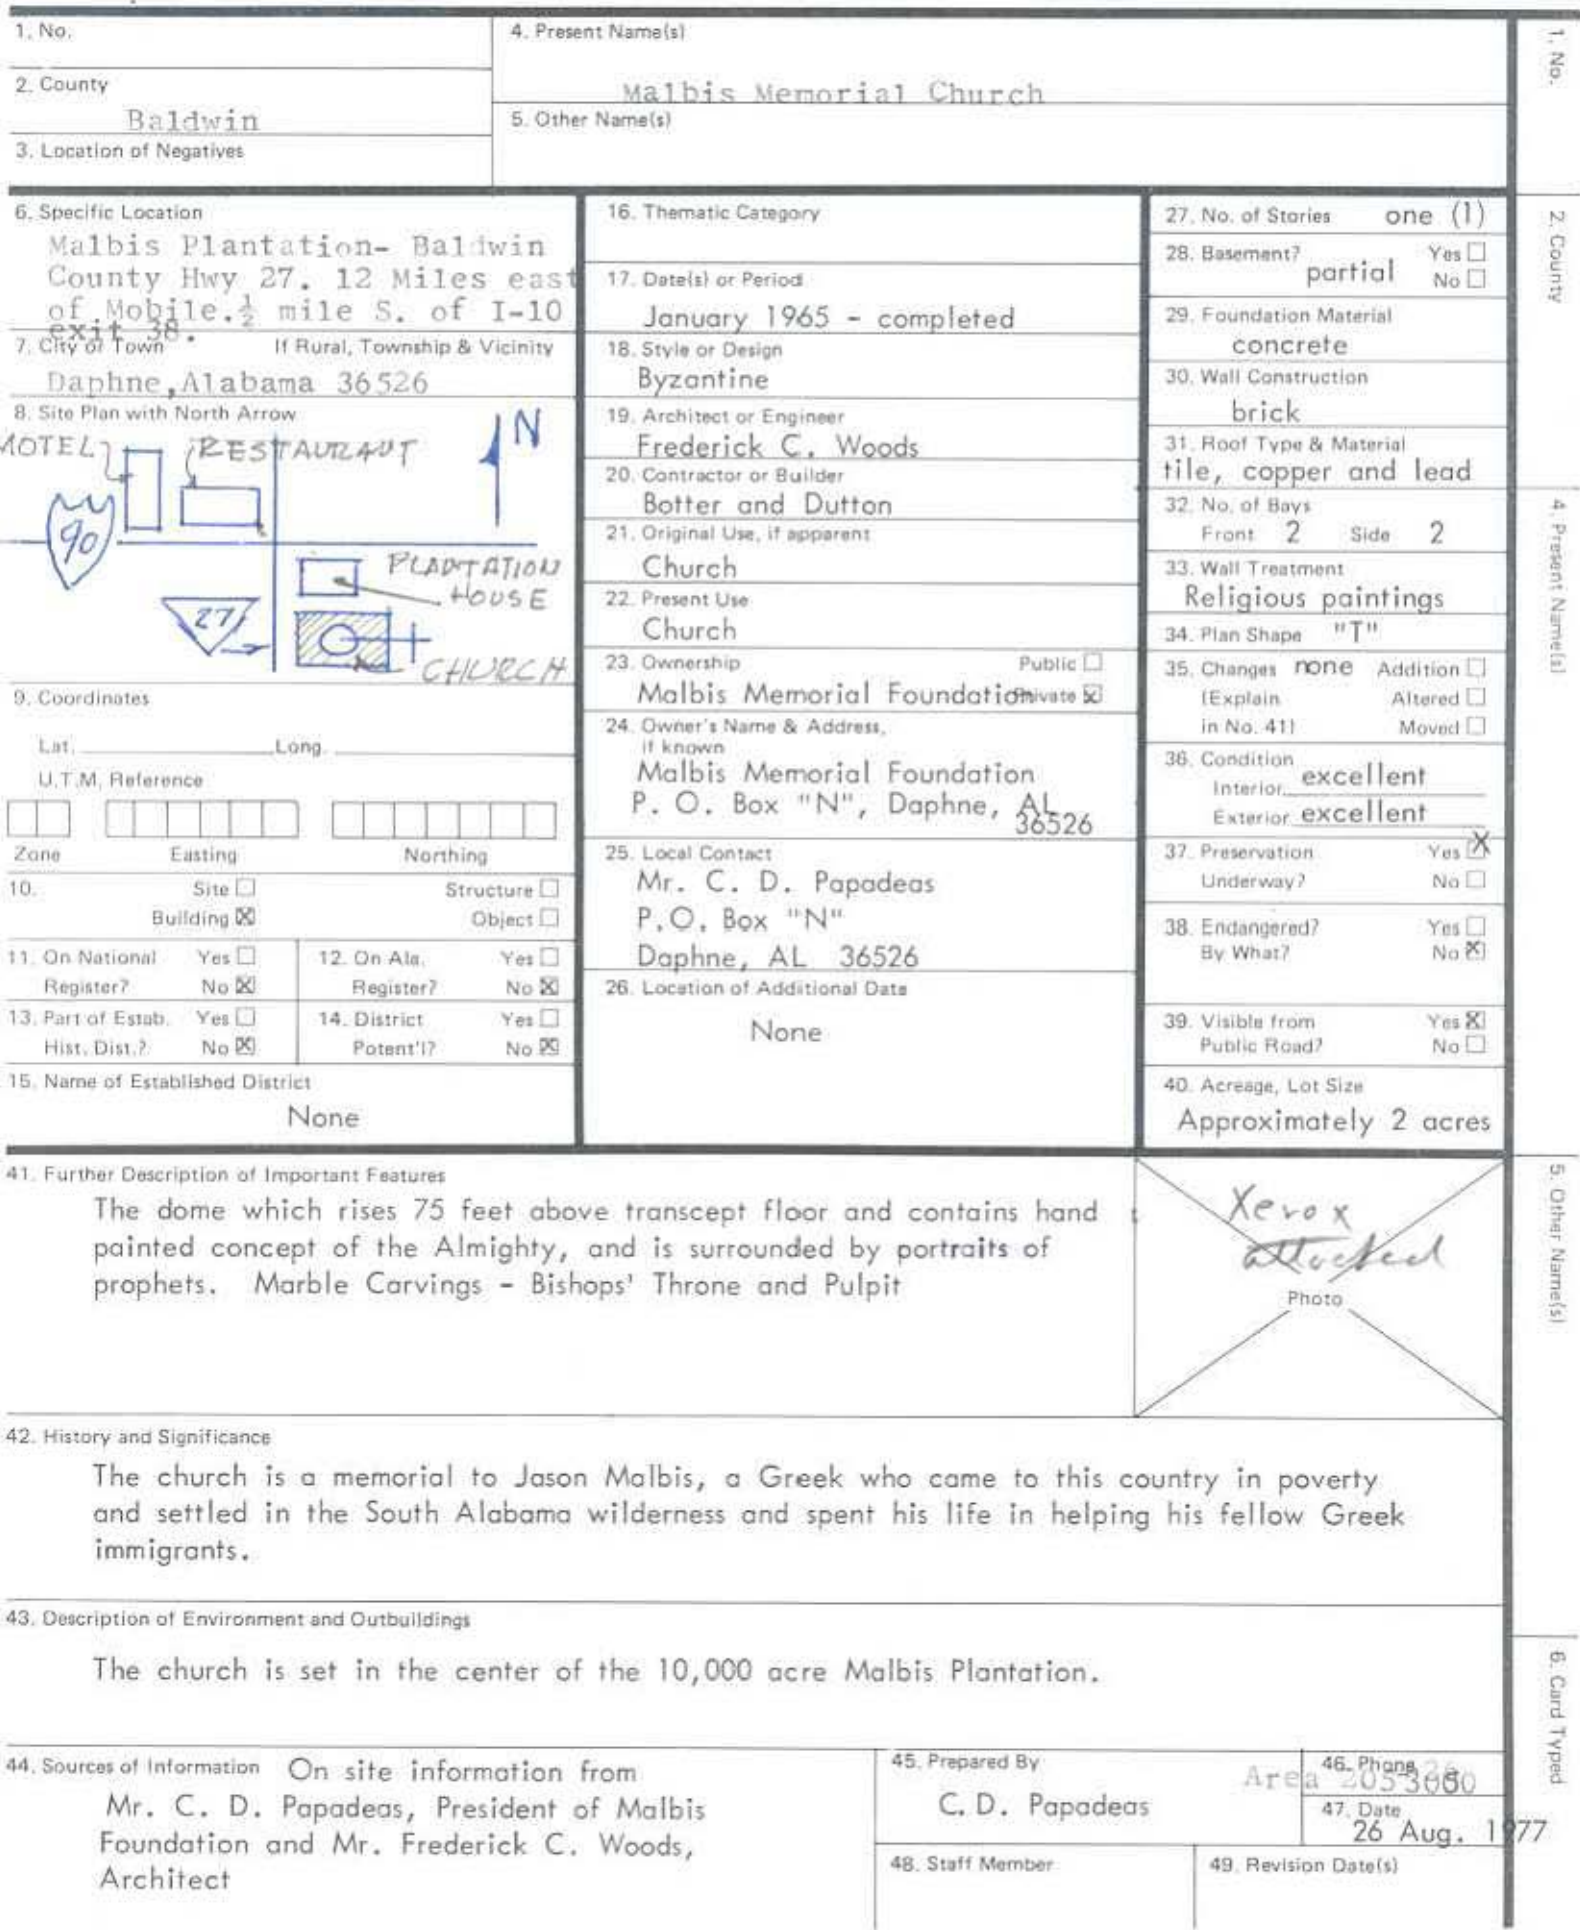 1. No.
2. County
Baldwin
3. Location of Negatives
4. Present Name(s)
Malbis Memorial Church
5. Other Name(s)
6. Specific Location
Malbis Plantation- Baldwin
County Hwy 27. 12 Miles east
of Mobile. ½ mile S. of I-10
exit 38.
7. City or Town If Rural, Township & Vicinity
Daphne, Alabama 36526
8. Site Plan with North Arrow
N
MOTEL
RESTAURAUT
90
PLANTATION
HOUSE
27
CHURCH
9. Coordinates
Lat. Long.
U.T.M. Reference
Zone Easting Northing
10. Site ☐ Structure ☐
Building ☒ Object ☐
11. On National Yes ☐
Register? No ☒
12. On Ala. Yes ☐
Register? No ☒
13. Part of Estab. Yes ☐
Hist. Dist.? No ☒
14. District Yes ☐
Potent'l? No ☒
15. Name of Established District
None
16. Thematic Category
17. Date(s) or Period
January 1965 - completed
18. Style or Design
Byzantine
19. Architect or Engineer
Frederick C. Woods
20. Contractor or Builder
Botter and Dutton
21. Original Use, if apparent
Church
22. Present Use
Church
23. Ownership Public ☐
Malbis Memorial Foundation Private ☒
24. Owner's Name & Address,
if known
Malbis Memorial Foundation
P. O. Box "N", Daphne, AL
36526
25. Local Contact
Mr. C. D. Papadeas
P.O. Box "N"
Daphne, AL 36526
26. Location of Additional Data
None
27. No. of Stories one (1)
28. Basement? Yes ☐
partial No ☐
29. Foundation Material
concrete
30. Wall Construction
brick
31. Roof Type & Material
tile, copper and lead
32. No. of Bays
Front 2 Side 2
33. Wall Treatment
Religious paintings
34. Plan Shape "T"
35. Changes none Addition ☐
(Explain Altered ☐
in No. 41) Moved ☐
36. Condition
Interior excellent
Exterior excellent
37. Preservation Yes ☒
Underway? No ☐
38. Endangered? Yes ☐
By What? No ☒
39. Visible from Yes ☒
Public Road? No ☐
40. Acreage, Lot Size
Approximately 2 acres
41. Further Description of Important Features
The dome which rises 75 feet above transcept floor and contains hand
painted concept of the Almighty, and is surrounded by portraits of
prophets. Marble Carvings - Bishops' Throne and Pulpit
Xerox
attached
Photo
42. History and Significance
The church is a memorial to Jason Malbis, a Greek who came to this country in poverty
and settled in the South Alabama wilderness and spent his life in helping his fellow Greek
immigrants.
43. Description of Environment and Outbuildings
The church is set in the center of the 10,000 acre Malbis Plantation.
44. Sources of Information On site information from
Mr. C. D. Papadeas, President of Malbis
Foundation and Mr. Frederick C. Woods,
Architect
45. Prepared By
C. D. Papadeas
46. Phone
Area 205
47. Date
26 Aug. 1977
48. Staff Member
49. Revision Date(s)
1. No.
2. County
4. Present Name(s)
5. Other Name(s)
6. Card Typed